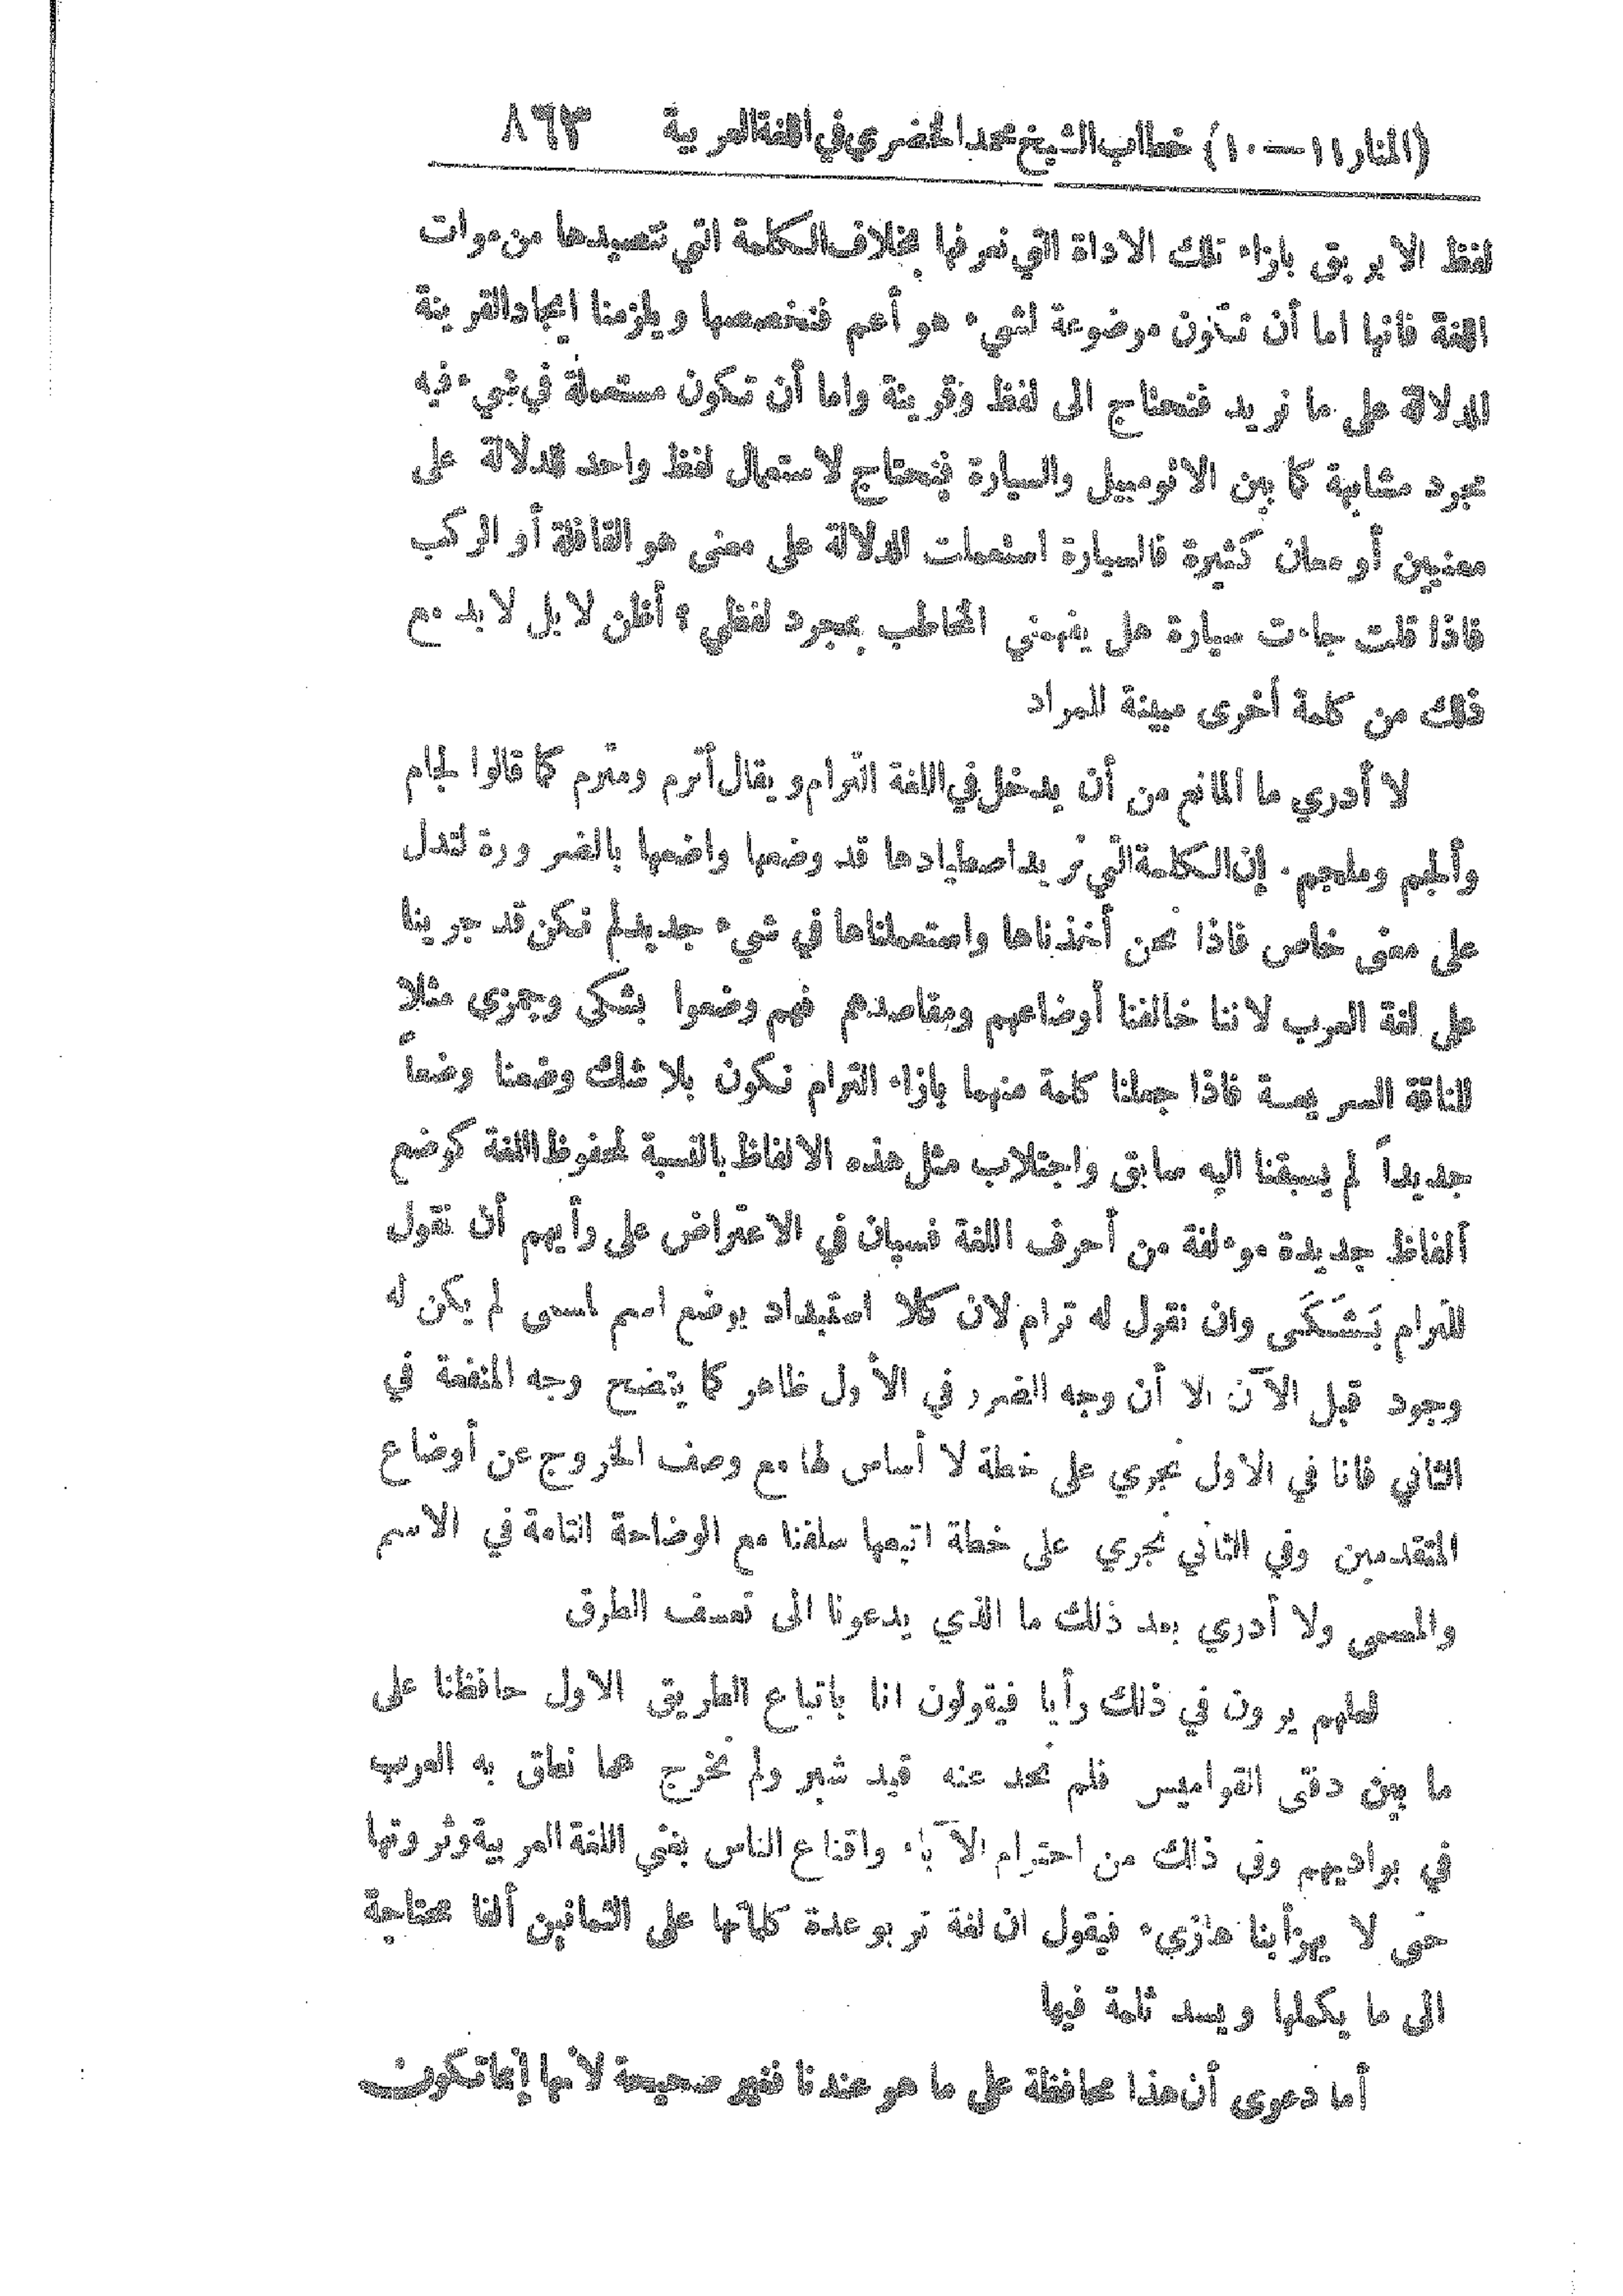 (المنار ١١ — ١٠) خطاب الشيخ محمد الخضري في اللغة العربية ٨٦٣
لفظ الابريق بازاء تلك الاداة التي نعرفها بخلاف الكلمة التي نتصيدها من موات
اللغة فانها اما أن تكون موضوعة لشيء هو أعم فنخصصها ويلزمنا ايجاد القرينة
للدلالة على ما نريد فنحتاج الى لفظ وقرينة واما أن تكون مستعملة في شيء فيه
مجرد مشابهة كما بين الاتومبيل والسيارة فنحتاج لاستعمال لفظ واحد للدلالة على
معنيين أو معان كثيرة فالسيارة استعملت للدلالة على معنى هو القافلة أو الركب
فاذا قلت جاءت سيارة هل يفهمني المخاطب بمجرد لفظي ؟ أظن لا بل لا بد مع
ذلك من كلمة أخرى مبينة للمراد
لا أدري ما المانع من أن يدخل في اللغة الترام ويقال أترم ومترم كما قالوا لجام
وألجم وملجم . إن الكلمة التي نريد اصطيادها قد وضعها واضعها بالضرورة لتدل
على معنى خاص فاذا نحن أخذناها واستعملناها في شيء جديد لم نكن قد جرينا
على لغة العرب لاننا خالفنا أوضاعهم ومقاصدهم فهم وضعوا بشكى وجمزى مثلا
للناقة السريعة فاذا جعلنا كلمة منهما بازاء الترام نكون بلا شك وضعنا وضعاً
جديداً لم يسبقنا اليه سابق واجتلاب مثل هذه الالفاظ بالنسبة لمحفوظ اللغة كوضع
ألفاظ جديدة موءلفة من أحرف اللغة فسيان في الاعتراض على رأيهم أن نقول
للترام بَشَكَى وان نقول له ترام لان كلا استبداد بوضع اسم لمسمى لم يكن له
وجود قبل الآن الا أن وجه الضرر في الأول ظاهر كما يتضح وجه المنفعة في
الثاني فانا في الاول نجري على خطة لا أساس لها مع وصف الخروج عن أوضاع
المتقدمين وفي الثاني نجري على خطة اتبعها سلفنا مع الوضاحة التامة في الاسم
والمسمى ولا أدري بعد ذلك ما الذي يدعونا الى تعسف الطرق
لعلهم يرون في ذلك رأيا فيقولون انا باتباع الطريق الاول حافظنا على
ما بين دفتى القواميس فلم نحد عنه قيد شبر ولم نخرج عما نطق به العرب
في بواديهم وفي ذلك من احترام الآباء واقناع الناس بغنى اللغة العربية وثروتها
حتى لا يهزأ بنا هازيء فيقول ان لغة تربو عدة كلماتها على الثمانين ألفا محتاجة
الى ما يكملها ويسد ثلمة فيها
أما دعوى أن هذا محافظة على ما هو عندنا فغير صحيحة لأنها إنما تكون